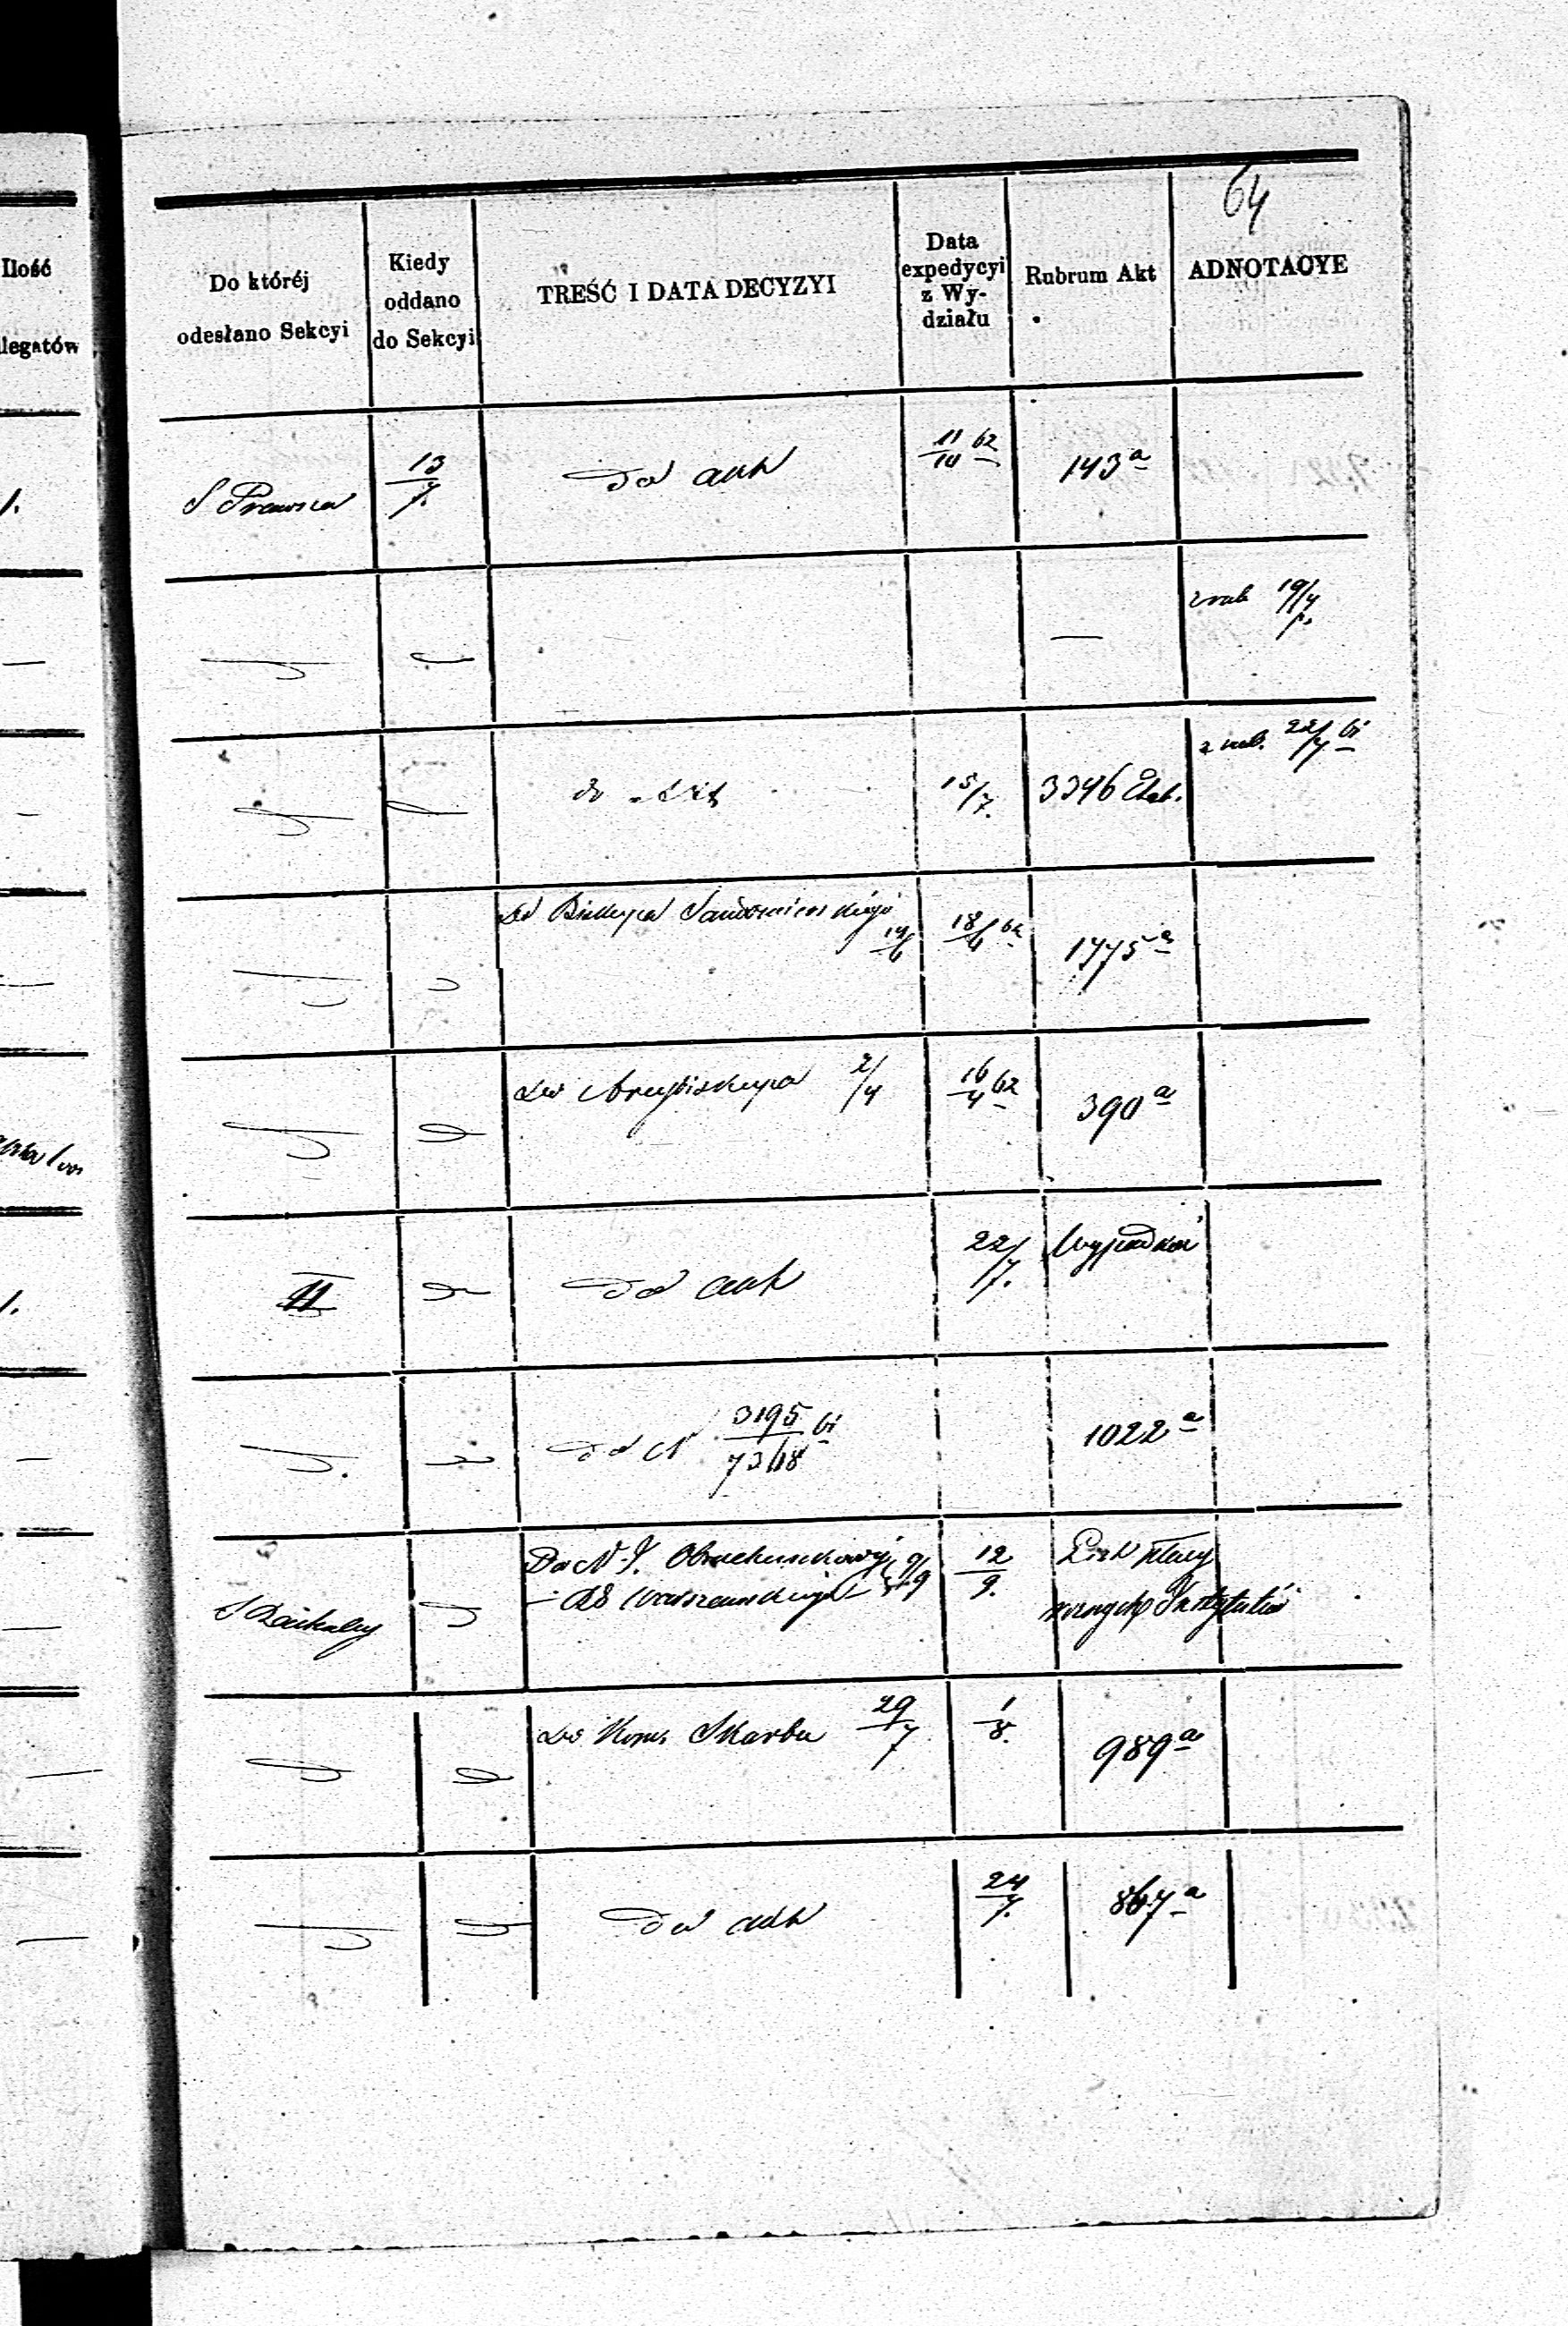 64
Ilość
legatów
Do któréj
odesłano Sekcyi
Kiedy
oddano
do Sekcyi
TREŚĆ I DATA DECYZYI
Data
expedycyi
z Wy-
działu
Rubrum Akt
ADNOTACYE
S Prawna
13/7.
Do akt
11/10 62
143 a
19/7
15/7.
3346
22/7 61
Do Biskupa Sandomierskiego
14/6
18/6 62
1775 a
Do Arcybiskupa 2/4
16/4 62
390 a
II
Do akt
22/7.
Wypadków
Do N 3195/7368 61
1022 a
Do N. I. Obrachunkowej 9/9
12/9.
Instytutów
Do Kom. Skarbu 29/7
1/8.
989 a
Do akt
24/7.
867 a